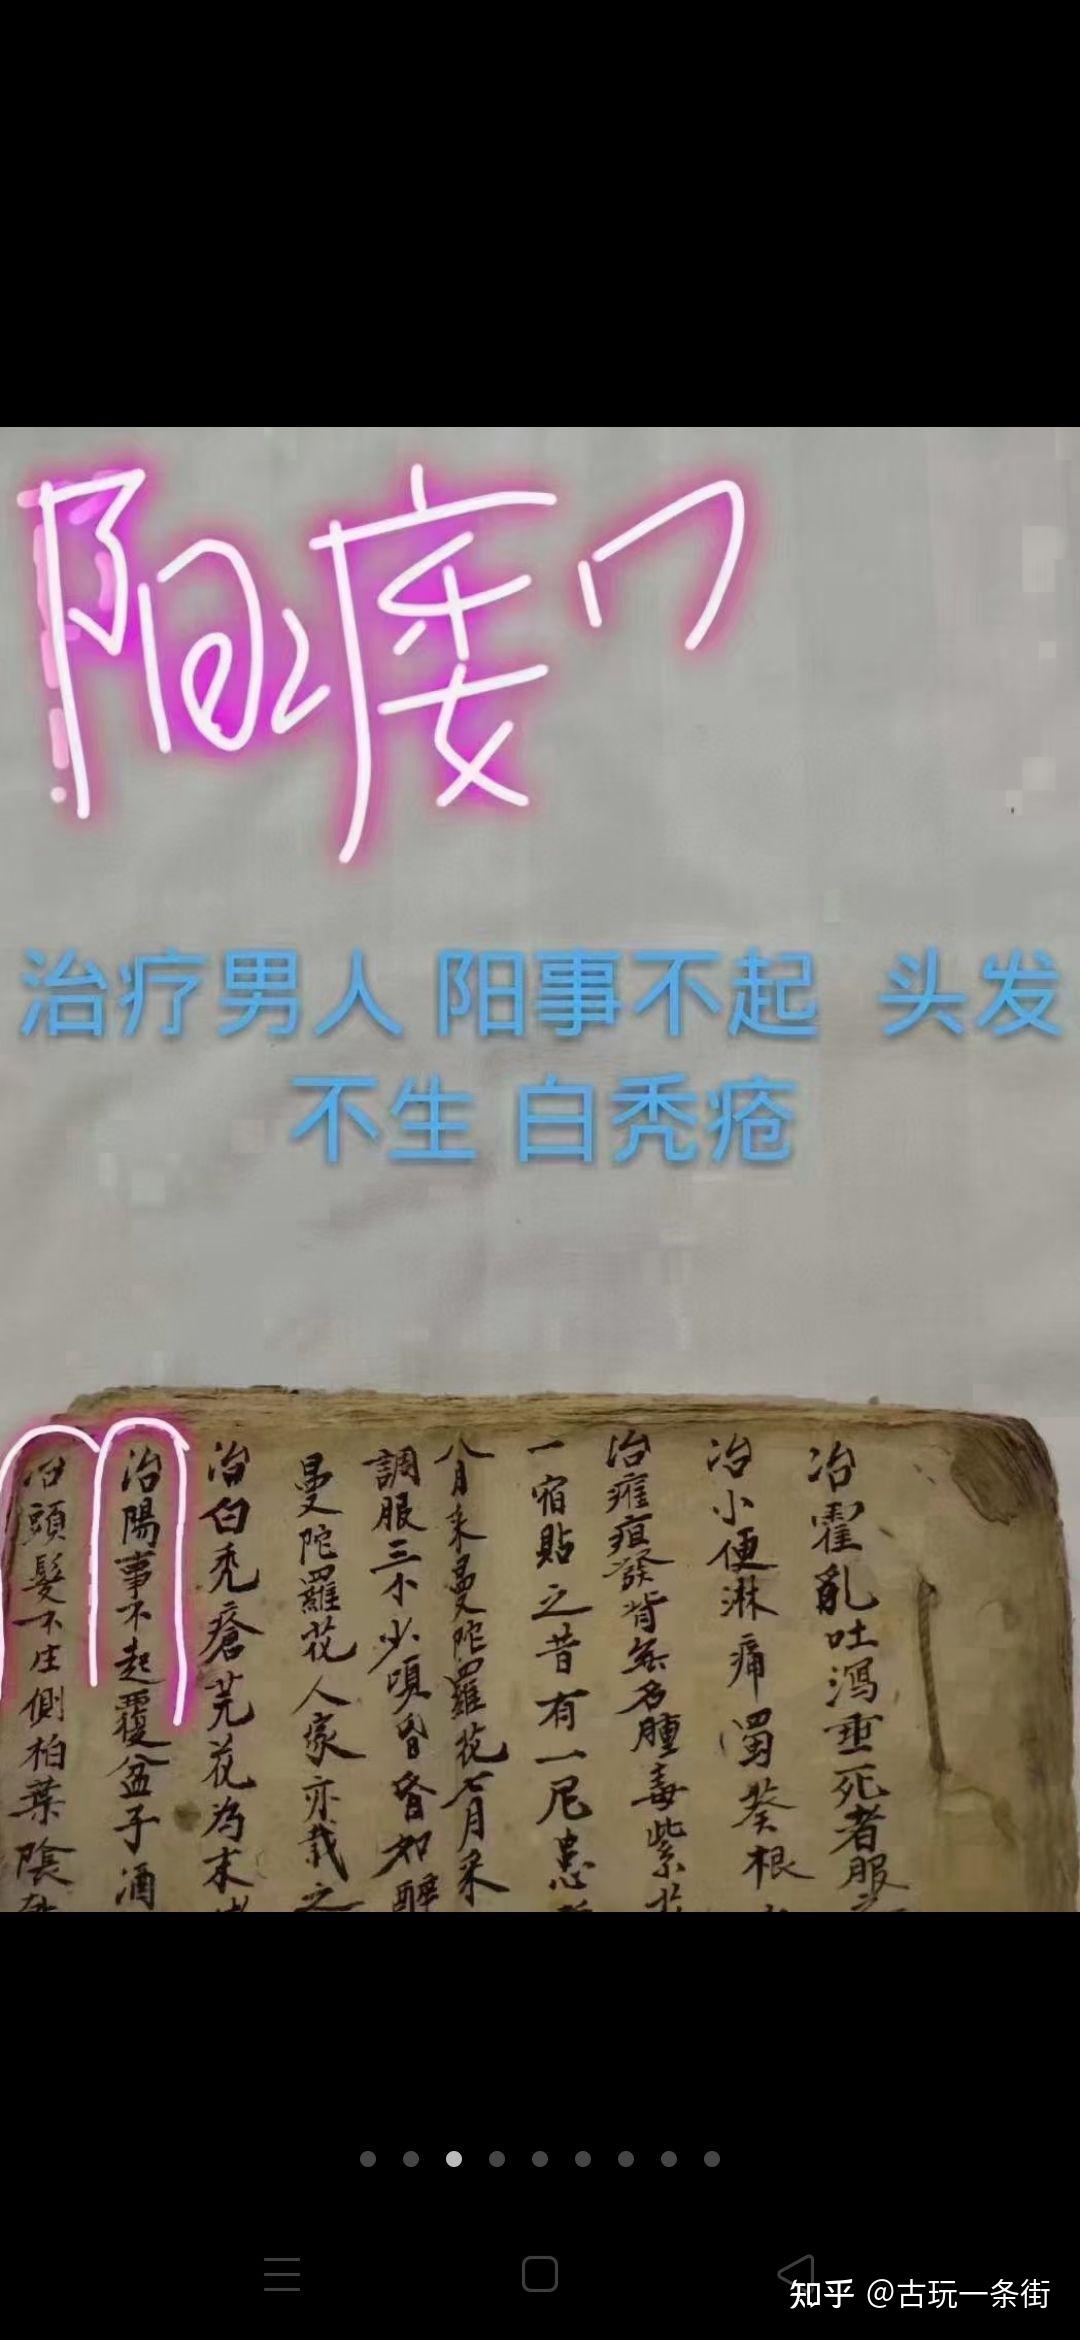 阳痿门
治疗男人 阳事不起 头发
不生 白秃疮
治霍亂吐瀉垂死者服
治小便淋痛蜀葵根
治癰疽發背無名腫毒紫
一宿貼之昔有一尼患
八月采曼陀羅花七月采
調服三小少頃昏昏如醉
曼陀羅花人家亦栽之
治白秃瘡芫花為末
治陽事不起覆盆子酒
治頭髮不生側柏葉陰
知乎 @古玩一条街